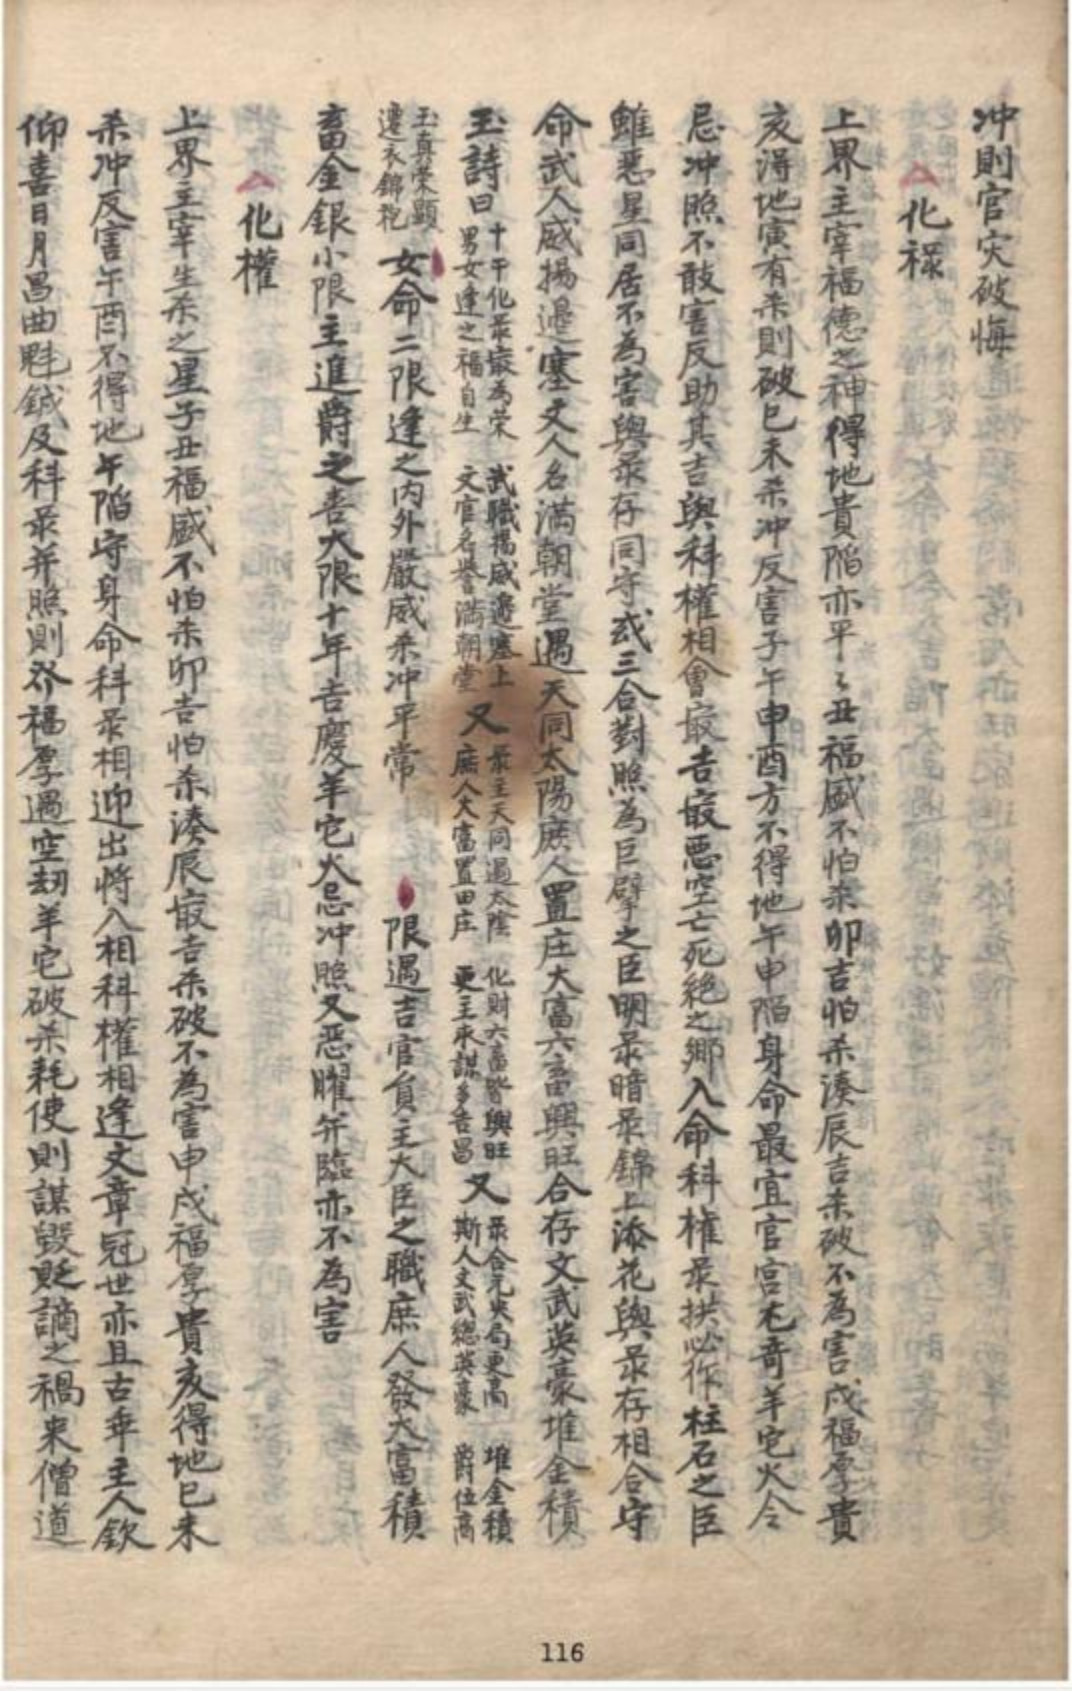 冲則官灾破悔
化祿
上界主宰福德之神得地貴陷亦平〻丑福盛不怕杀卯吉怕杀湊辰吉杀破不為害戌福厚貴
亥得地寅有杀則破巳未杀冲反害子午申酉方不得地午申陷身命最宜官宮尤奇羊宅火令
忌冲照不敢害反助其吉與科權相會最吉最悪空亡死絶之鄉入命科權彔拱必作柱石之臣
雖悪星同居不為害與彔存同守或三合對照為巨擘之臣明彔暗彔錦上添花與彔存相合守
命武人威揚邉塞文人名滿朝堂遇天同太陽庶人置庄大富六畜興旺合存文武英豪堆金積
玉詩曰 十干化彔最為荣 男女逢之福自生 武職揚威邉塞上 文官名譽滿朝堂 又 彔主天同遇太陰 庶人大富置田庄 化財六畜皆興旺 更主求謀多吉昌 又 彔合元來局更高 斯人文武總英豪 堆金積
玉真榮顕 爵位高
遷衣錦袍 女命二限逢之内外嚴威杀冲平常 限遇吉官負主大臣之職庶人發大富積
畜金銀小限主進爵之喜大限十年吉慶羊宅火忌冲照又悪曜并臨亦不為害
化權
上界主宰生杀之星子丑福盛不怕杀卯吉怕杀湊辰最吉杀破不為害申戌福厚貴亥得地巳未
杀冲反害午酉不得地午陷守身命科彔相迎出將入相科權相逢文章冠世亦且古年主人欽
仰喜日月昌曲魁鉞及科彔并照則发福厚遇空刧羊宅破杀耗使則謀毀貶謫之禍來僧道
116